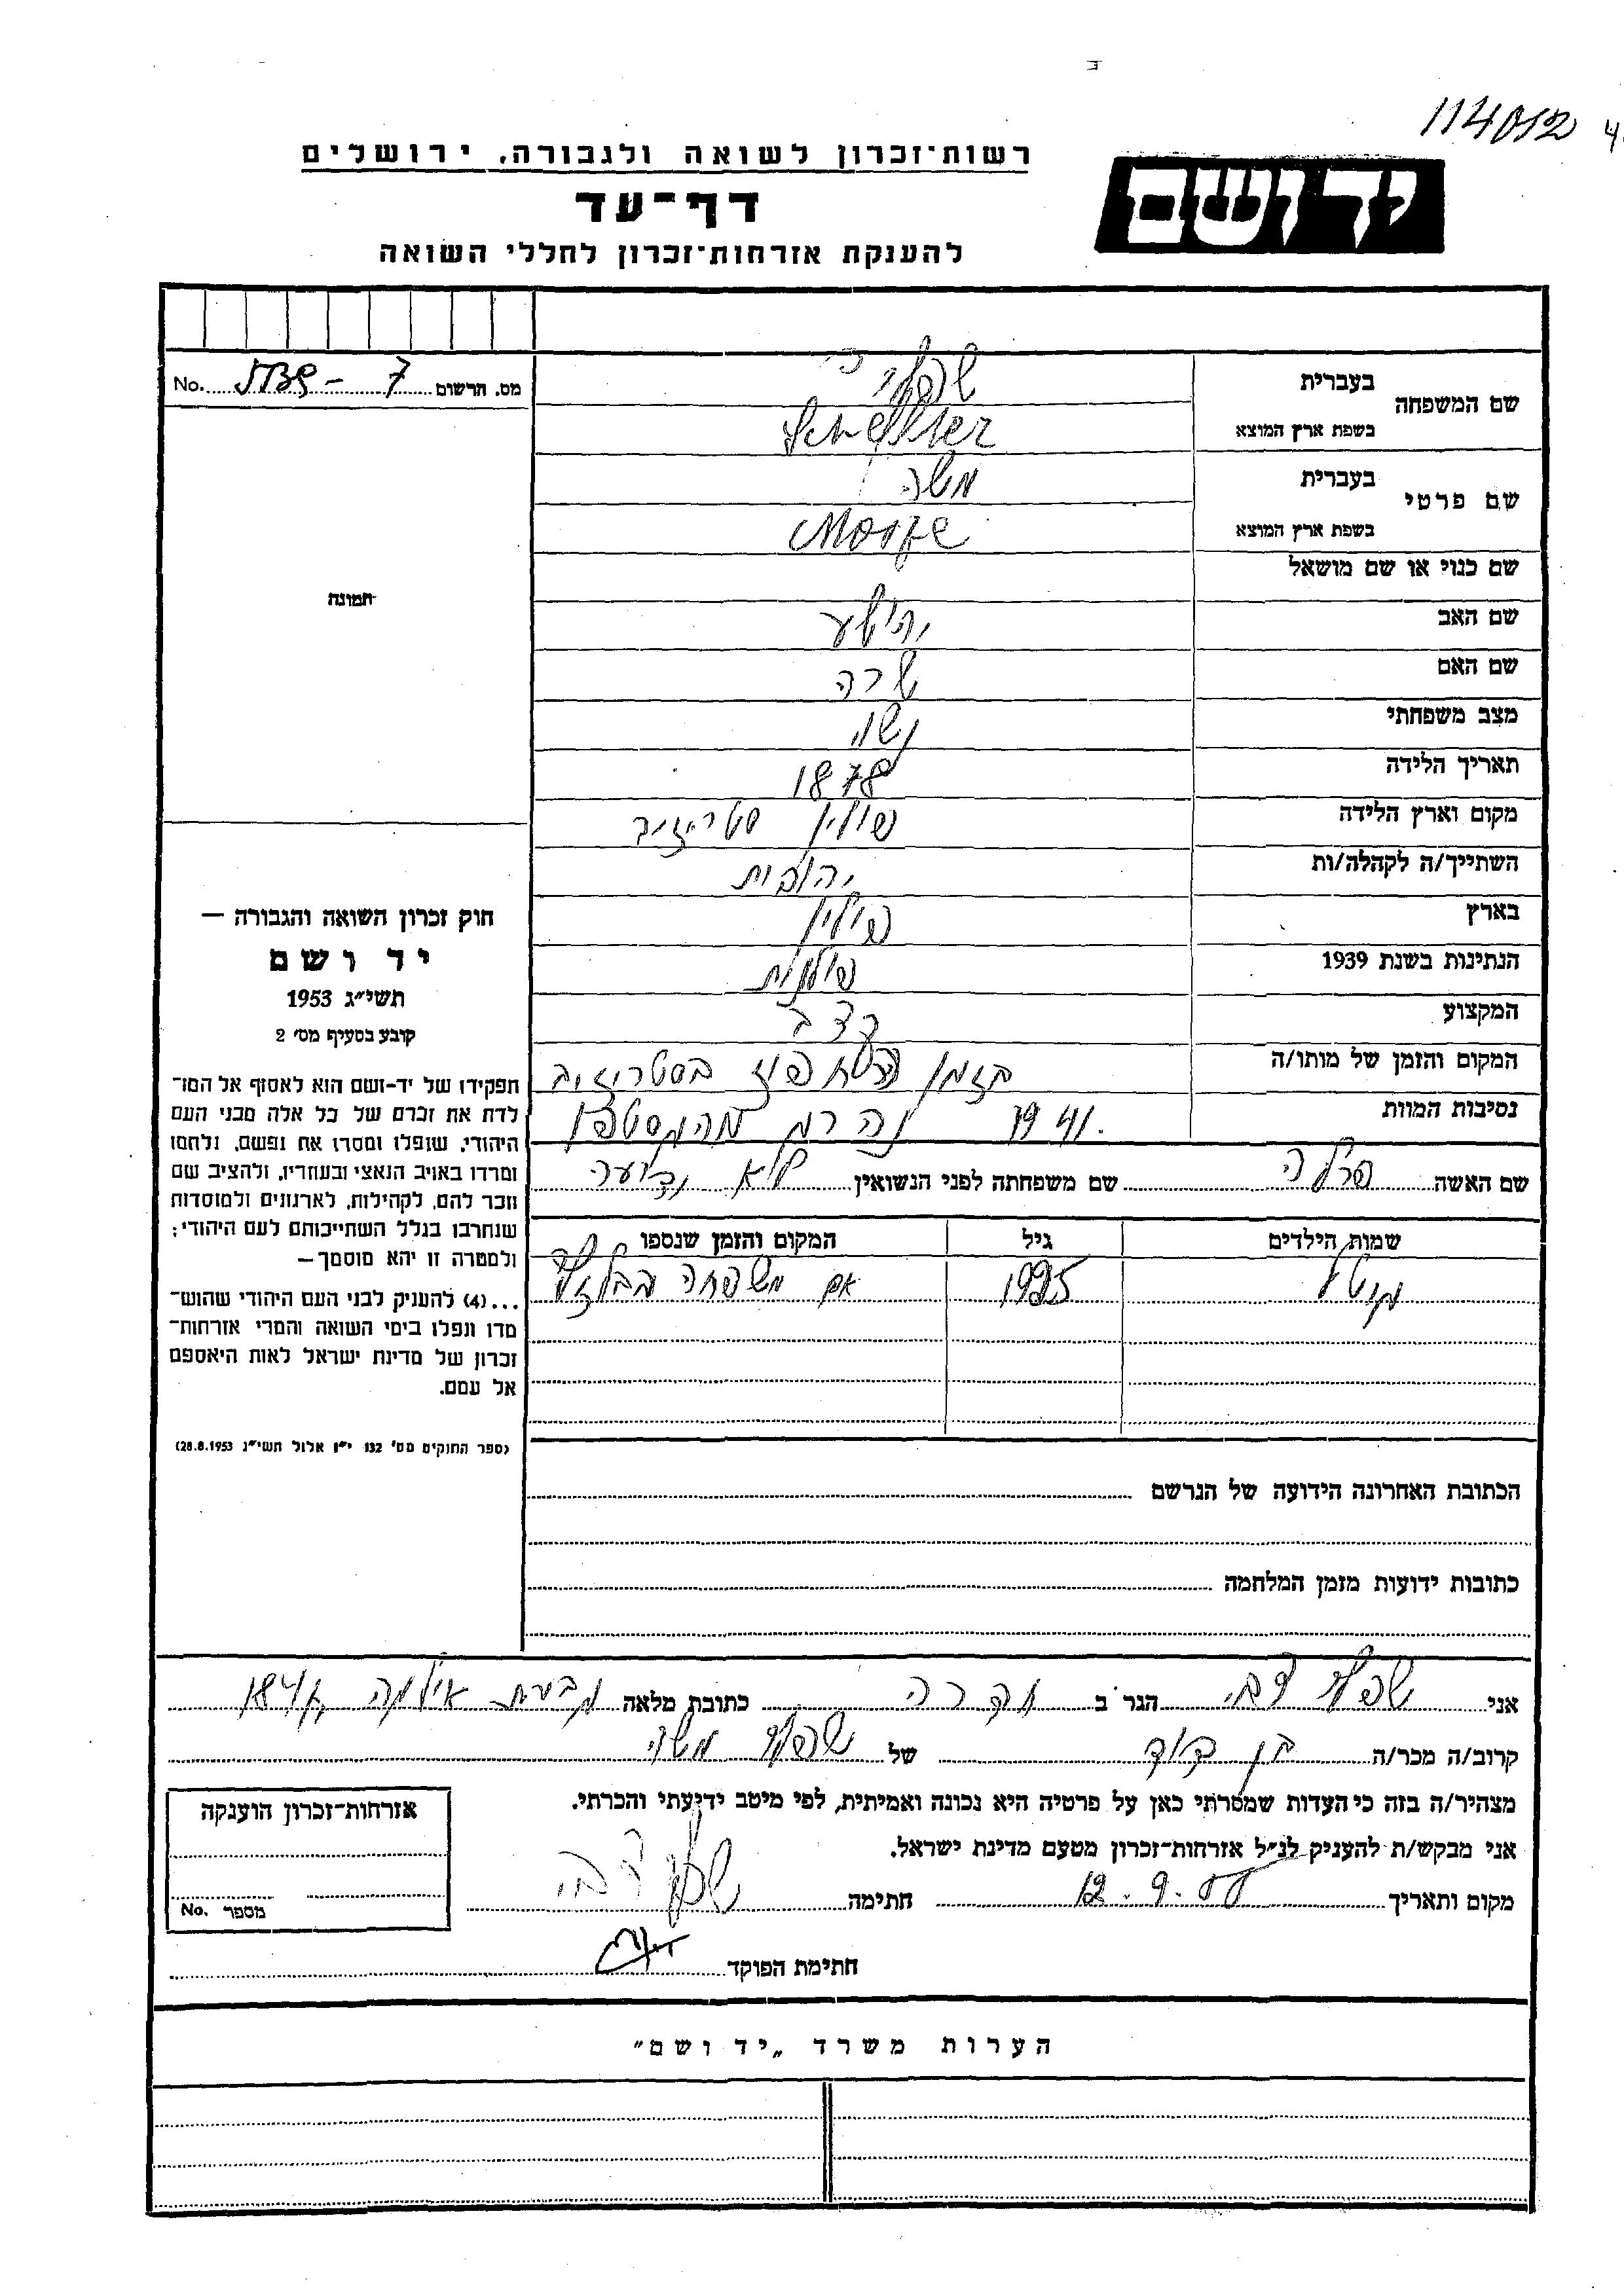 114012
רשות־זכרון לשואה ולגבורה, ירושלים
דף־עד
להענקת אזרחות־זכרון לחללי השואה
יד ושם
מס. הרשום No.
שם המשפחה
בעברית
בשפת ארץ המוצא
שם פרטי
בעברית משה
בשפת ארץ המוצא
שם כנוי או שם מושאל
שם האב
שם האם שרה
מצב משפחתי נשוי
תאריך הלידה 1878
מקום וארץ הלידה פולין
השתייך/ה לקהלה/ות יהודית
בארץ פולין
הנתינות בשנת 1939 פולנית
המקצוע קצב
המקום והזמן של מותו/ה בזמן
נסיבות המוות 1941. נהרג מהגסטפו
שם האשה פרלה שם משפחתה לפני הנשואין לא ידוע
שמות הילדים גיל המקום והזמן שנספו
1925 עם משפחה
הכתובת האחרונה הידועה של הנרשם
כתובות ידועות מזמן המלחמה
תמונה
חוק זכרון השואה והגבורה —
יד ושם
תשי״ג 1953
קובע בסעיף מס׳ 2
תפקידו של יד-ושם הוא לאסוף אל המו־
לדת את זכרם של כל אלה מבני העם
היהודי, שנפלו ומסרו את נפשם, נלחמו
ומרדו באויב הנאצי ובעוזריו, ולהציב שם
וזכר להם, לקהילות, לארגונים ולמוסדות
שנחרבו בגלל השתייכותם לעם היהודי;
ולמטרה זו יהא מוסמך—
...(4) להעניק לבני העם היהודי שהוש־
מדו ונפלו בימי השואה והמרי אזרחות־
זכרון של מדינת ישראל לאות היאספם
אל עמם.
(ספר החוקים מס׳ 132 י״ז אלול תשי״ג 28.8.1953)
אני הגר ב כתובת מלאה גבעת אילמה
קרוב/ה מכר/ה בן דוד של
מצהיר/ה בזה כי העדות שמסרתי כאן על פרטיה היא נכונה ואמיתית, לפי מיטב ידיעתי והכרתי.
אני מבקש/ת להעניק לנ״ל אזרחות־זכרון מטעם מדינת ישראל.
מקום ותאריך 12.9.55 חתימה
חתימת הפוקד
אזרחות־זכרון הוענקה
מספר No.
הערות משרד „יד ושם״